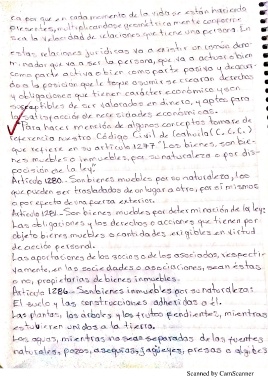 ca porque en cada momento de la vida se están haciendo
presentes, multiplicándose geométricamente conforme
sea la velocidad de relaciones que tiene una persona. En
estas relaciones jurídicas va a existir un común deno-
minador que va a ser la persona, que va a actuar o bien
como parte activa o bien como parte pasiva y de acuer-
do a la posición que le toque asumir se crearán derechos
y obligaciones que tienen carácter económico y son
susceptibles de ser valorados en dinero, y aptos para
la satisfacción de necesidades económicas.
Para hacer mención de algunos conceptos tomare de
referencia nuestro Código Civil de Coahuila (C.C.C.)
que refiere en su artículo 1277 "Los bienes, son bie-
nes muebles o inmuebles, por su naturaleza o por dis-
posición de la ley.
Artículo 1280. Son bienes muebles por su naturaleza, los
que pueden ser trasladados de un lugar a otro, por sí mismos
o por efecto de una fuerza exterior.
Artículo 1281. Son bienes muebles por determinación de la ley:
Las obligaciones y los derechos o acciones que tienen por
objeto bienes muebles o cantidades exigibles en virtud
de acción personal.
Las aportaciones de los socios o de los asociados, respecti-
vamente, en las sociedades o asociaciones, sean éstas
o no, propietarias de bienes inmuebles.
Artículo 1286. Son bienes inmuebles por su naturaleza:
El suelo y las construcciones adheridas a él.
Las plantas, los árboles y los frutos pendientes, mientras
estuvieren unidos a la tierra.
Las aguas, mientras no sean separadas de las fuentes
naturales, pozos, acequias, jagüeyes, presas o algibes
Scanned by CamScanner